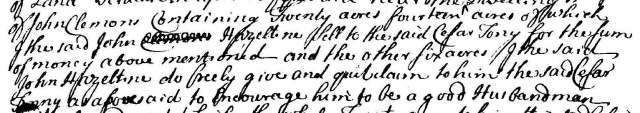 of John Clemons Containing Twenty acres fourtan acres of which
I the said John Hazeltine sell to the said Cesar Tony for the sum
of money above mentioned and the other six acres I the said
John Hazeltine do freely give and quit claim to him the said Cesar
Tony as afore said to Encourage him to be a good Husbandman